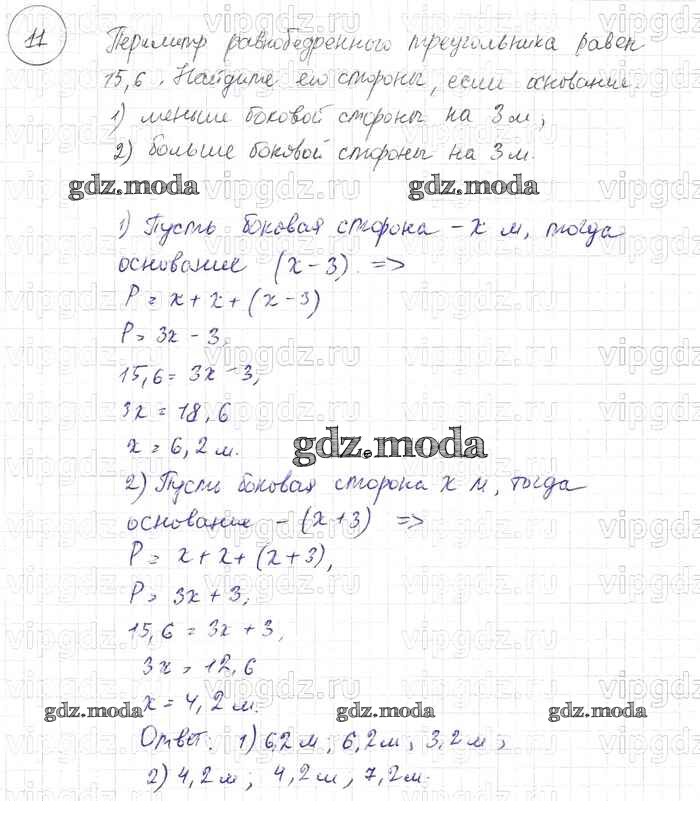 11
Периметр равнобедренного треугольника равен
15,6. Найдите его стороны, если основание.
1) меньше боковой стороны на 3м;
2) больше боковой стороны на 3м.
gdz.moda gdz.moda
1) Пусть боковая сторона – x м, тогда
основание (x-3) =>
P = x + x + (x-3)
P = 3x - 3,
15,6 = 3x - 3,
3x = 18,6
x = 6,2 м.
gdz.moda
2) Пусть боковая сторона x м, тогда
основание – (x+3) =>
P = x + x + (x+3),
P = 3x + 3,
15,6 = 3x + 3,
3x = 12,6
x = 4,2 м.
gdz.moda gdz.moda gdz.moda
Ответ: 1) 6,2 м; 6,2 м; 3,2 м;
2) 4,2 м; 4,2 м; 7,2 м.
vipgdz.ru